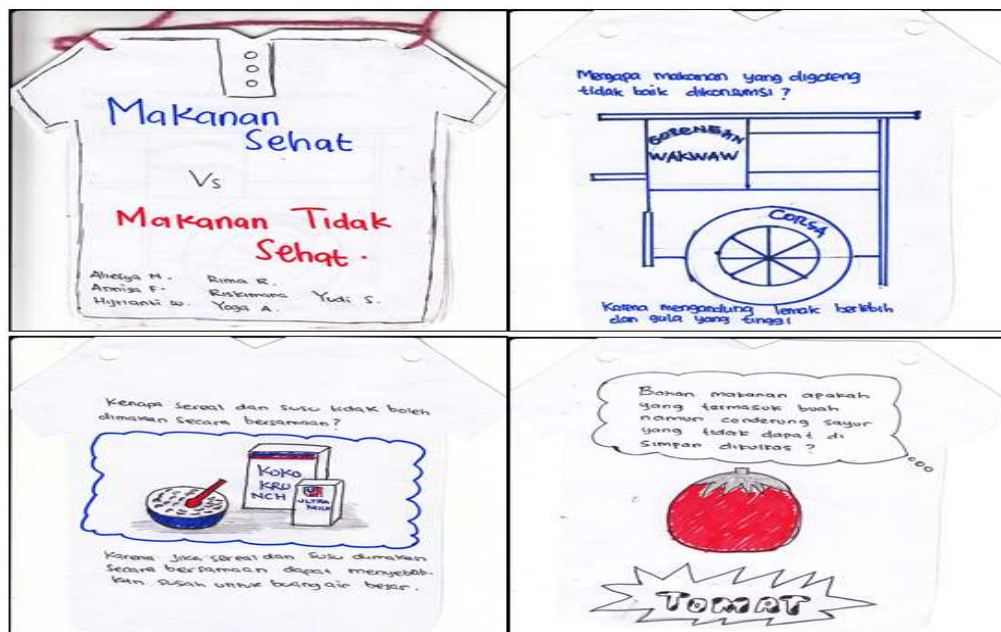 Makanan
Sehat
Vs
Makanan Tidak
Sehat.
Rima R.
Annisa F.
Riskimana
Yudi S.
Yoga A.
Mengapa makanan yang digoreng
tidak baik dikonsumsi ?
GORENGAN
WAKWAW
CORSA
Karena mengandung lemak berlebih
dan gula yang tinggi
Kenapa sereal dan susu tidak boleh
dimakan secara bersamaan ?
KOKO
KRU
NCH
ULTRA
MILK
Karena jika sereal dan susu dimakan
secara bersamaan dapat menyebab-
kan susah untuk buang air besar.
Bahan makanan apakah
yang termasuk buah
namun cenderung sayur
yang tidak dapat di
simpan dikulkas ?
TOMAT